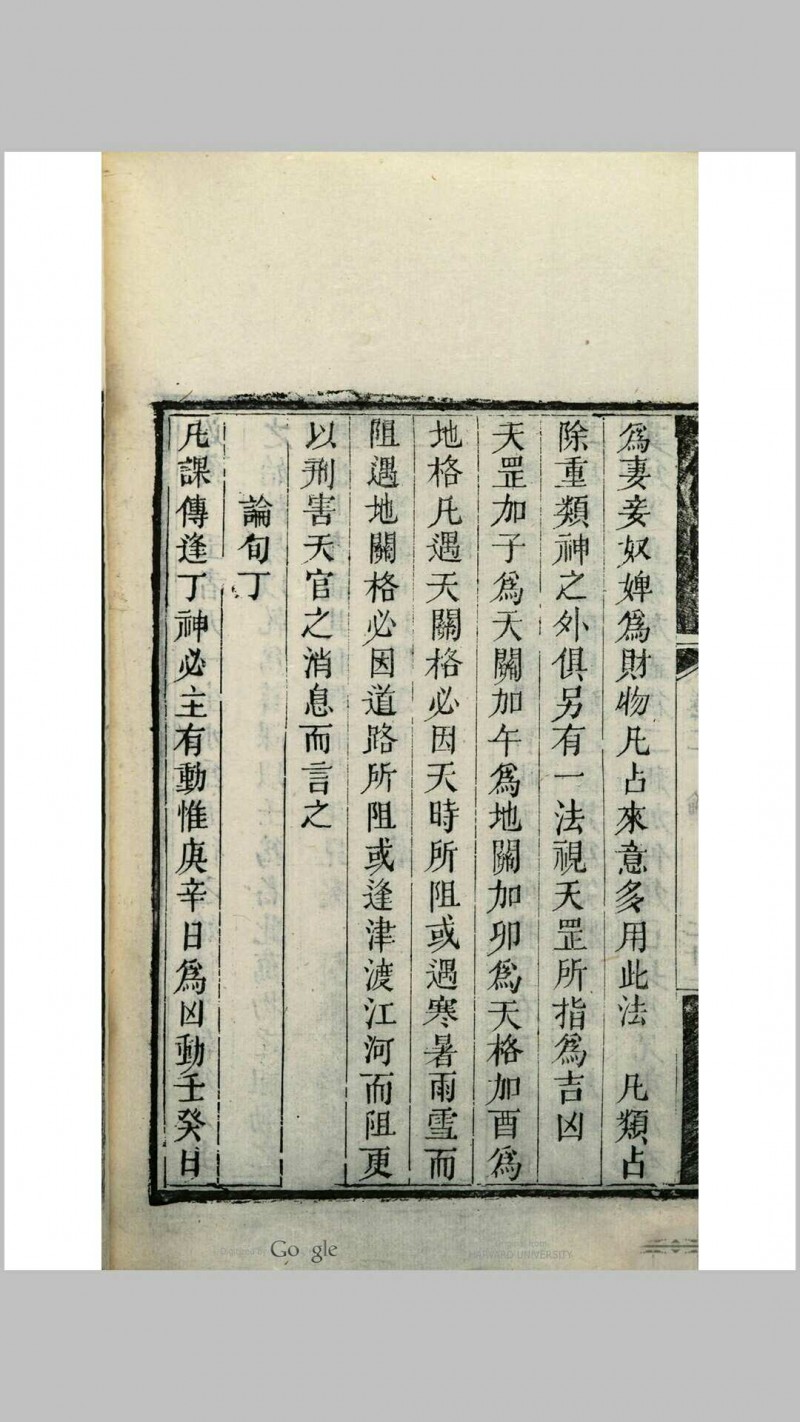 為妻妾奴婢為財物凡占來意多用此法　凡類占
除重類神之外俱另有一法視天罡所指為吉凶
天罡加子為天關加午為地關加卯為天格加酉為
地格凡遇天關格必因天時所阻或遇寒暑雨雪而
阻遇地關格必因道路所阻或逢津渡江河而阻更
以刑害天官之消息而言之
論旬丁
凡課傳逢丁神必主有動惟庚辛日為凶動壬癸日
Google
HARVARD UNIVERSITY